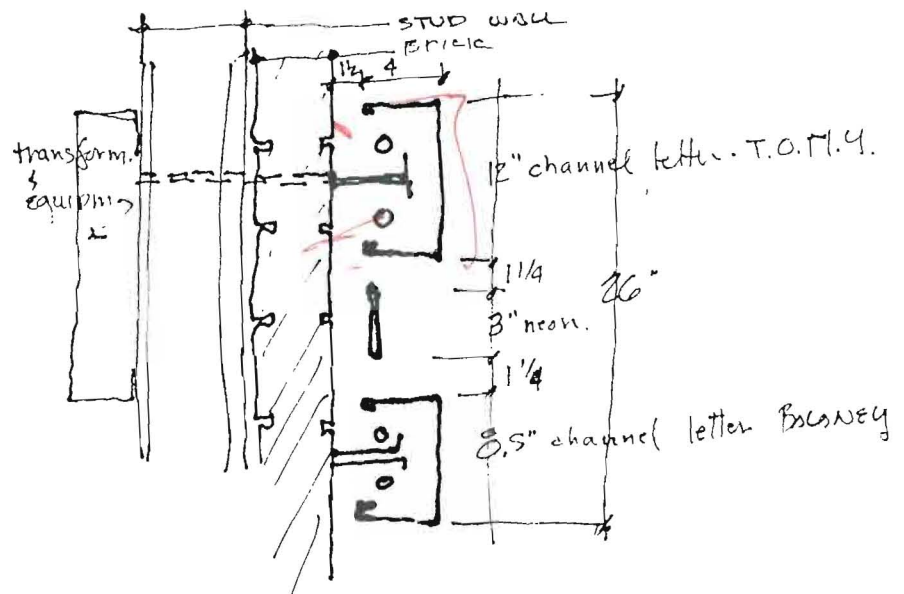 STUD WALL
BRICK
1½ 4
transform.
&
equipm
12" channel letter. T.O.M.Y.
1 1/4
26"
3" neon.
1 1/4
8.5" channel letter BALONEY